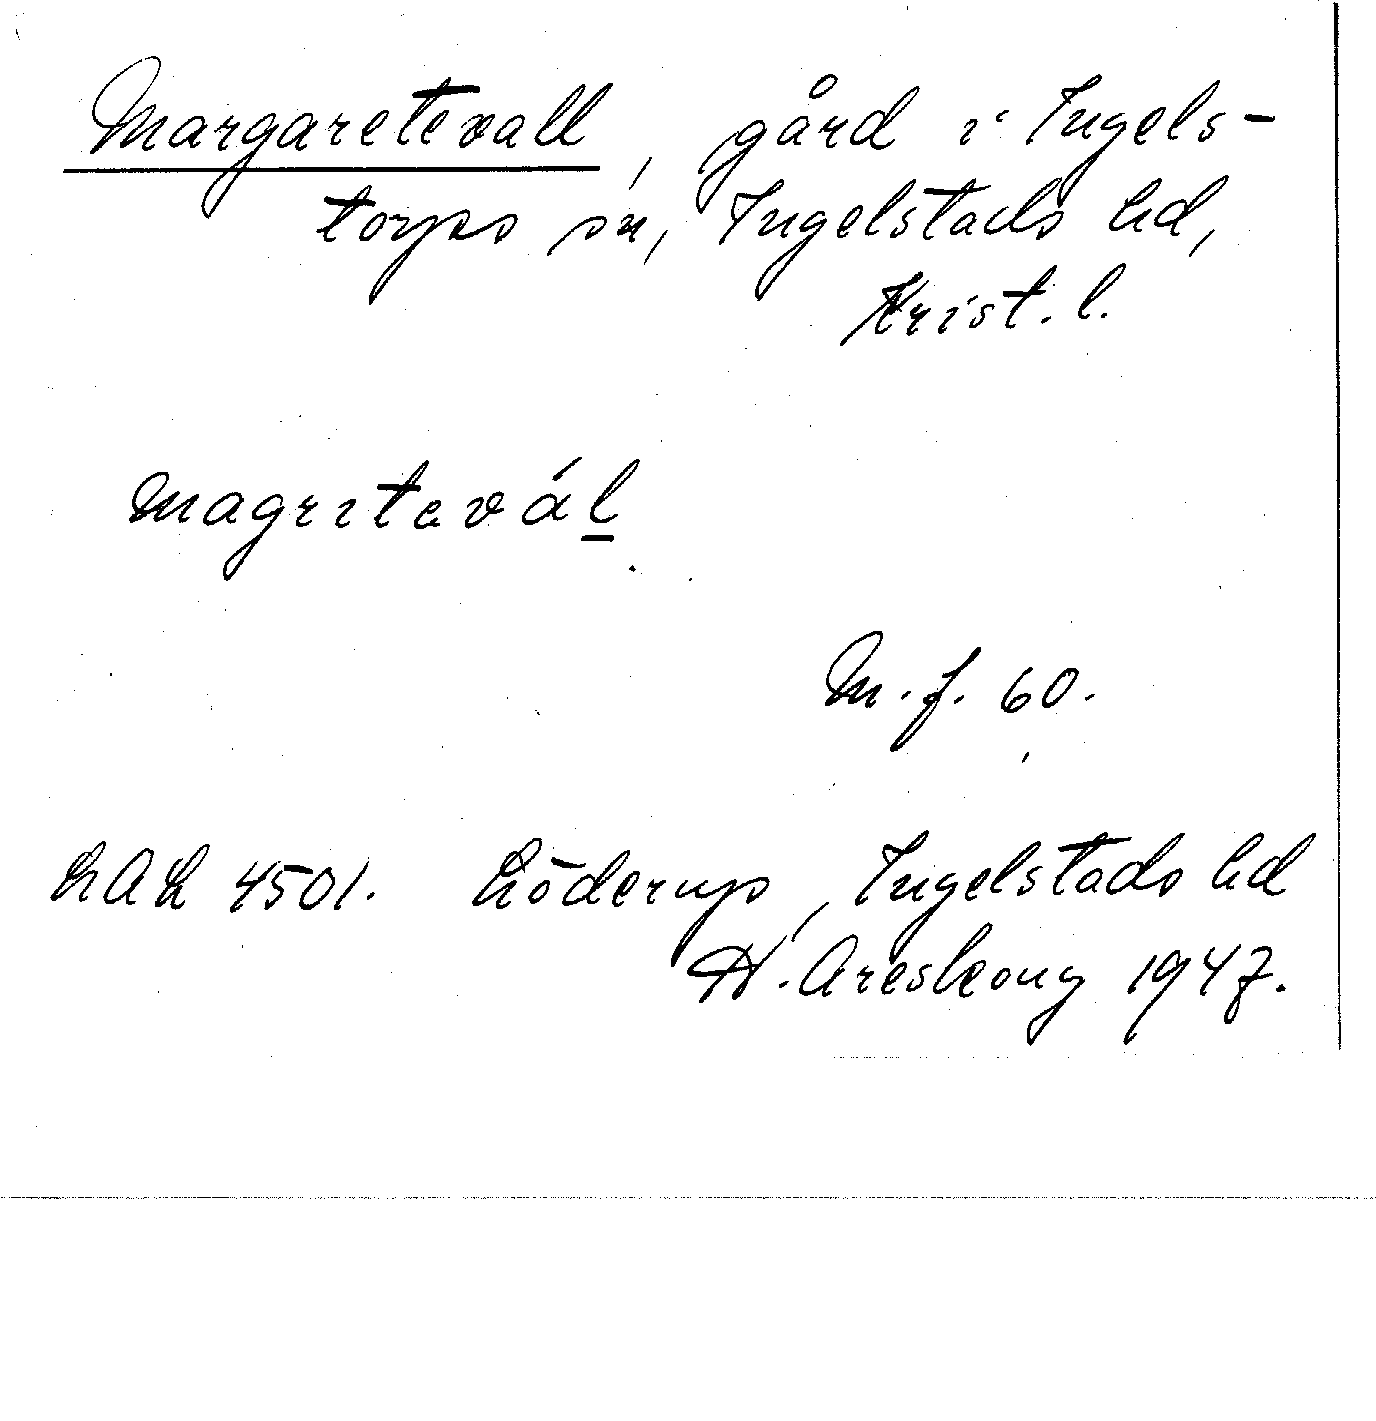 Margaretevall, gård i Ingels-
torps sn, Ingelstads hd,
Krist. l.
magritavál
M. f. 60.
LAL 4501. Löderup, Ingelstads hd
H. Areskoug 1947.